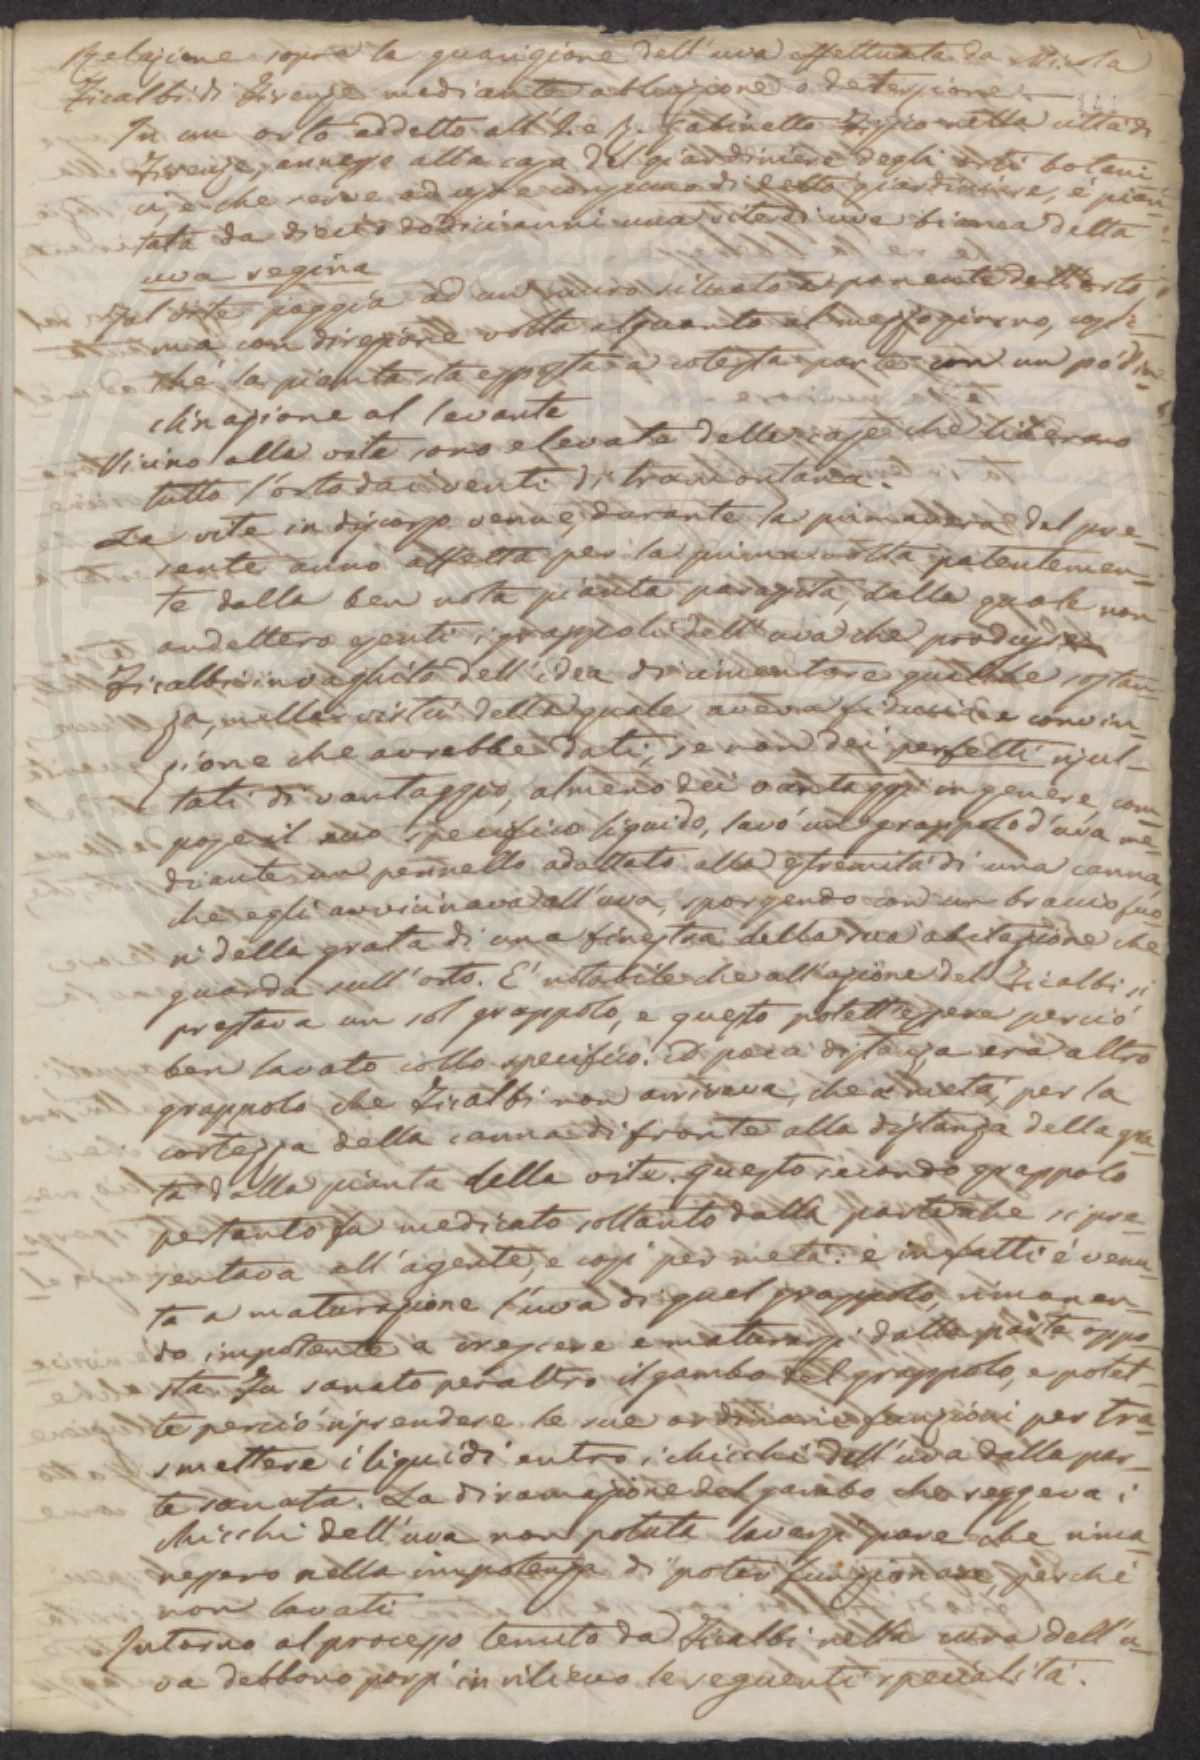 Relazione sopra la guarigione dell'uva effettuata da Nicola
Ficalbi di Firenze mediante abluzione o detersione —
In un orto addetto all'I. e R. Gabinetto Fisico nella città di
Firenze, annesso alla casa del giardiniere degli orti botani-
ci, e che serve ad uso e consumo di detto giardiniere, è pian-
tata da dieci o dodici anni una vite di uva bianca detta
uva regina
Tal vite poggia ad un muro situato a ponente dell'orto,
ma con direzione volta alquanto al mezzogiorno, cosic-
ché la pianta sta esposta a cotesta parte con un po' d'in-
clinazione al levante
Vicino alla vite sono elevate delle case che liberano
tutto l'orto dai venti di tramontana.
La vite in discorso venne, durante la primavera del pre-
sente anno affetta per la prima volta patentemen-
te dalla ben nota pianta parasita, dalla quale non
andettero esenti i grappoli dell'uva che produsse
Ficalbi invaghito dell'idea di cimentare qualche sostan-
za, nella virtù della quale aveva fiducia e convin-
zione che avrebbe dati, se non dei perfetti risul-
tati di vantaggio, almeno dei vantaggi in genere, com-
pose il suo specifico liquido, lavò un grappolo d'uva me-
diante un pennello adattato alla estremità di una canna,
che egli avvicinava all'uva, sporgendo con un braccio fuo-
ri della grata di una finestra della sua abitazione che
guarda sull'orto. E' notabile che all'azione del Ficalbi si
prestava un sol grappolo, e questo potett'essere perciò
ben lavato collo specifico. A poca distanza era altro
grappolo che Ficalbi non arrivava, che a metà, per la
cortezza della canna di fronte alla distanza della gra-
ta dalla pianta della vite. questo secondo grappolo
pertanto fu medicato soltanto dalla parte che si pre-
sentava all'agente, e così per metà: e infatti è venu-
ta a maturazione l'uva di quel grappolo, rimanen-
do impotente a crescere e maturarsi dalla parte oppo-
sta. Fu sanato peraltro il gambo del grappolo, e potet-
te perciò riprendere le sue ordinarie funzioni per tra-
smettere i liquidi entro i chicchi dell'uva dalla par-
te sanata. La diramazione del gambo che reggeva i
chicchi dell'uva non potuta lavarsi pare che rima-
nessero nella impotenza di poter funzionare, perché
non lavati
Intorno al processo tenuto da Ficalbi nella cura dell'u-
va debbono porsi in rilievo le seguenti specialità.